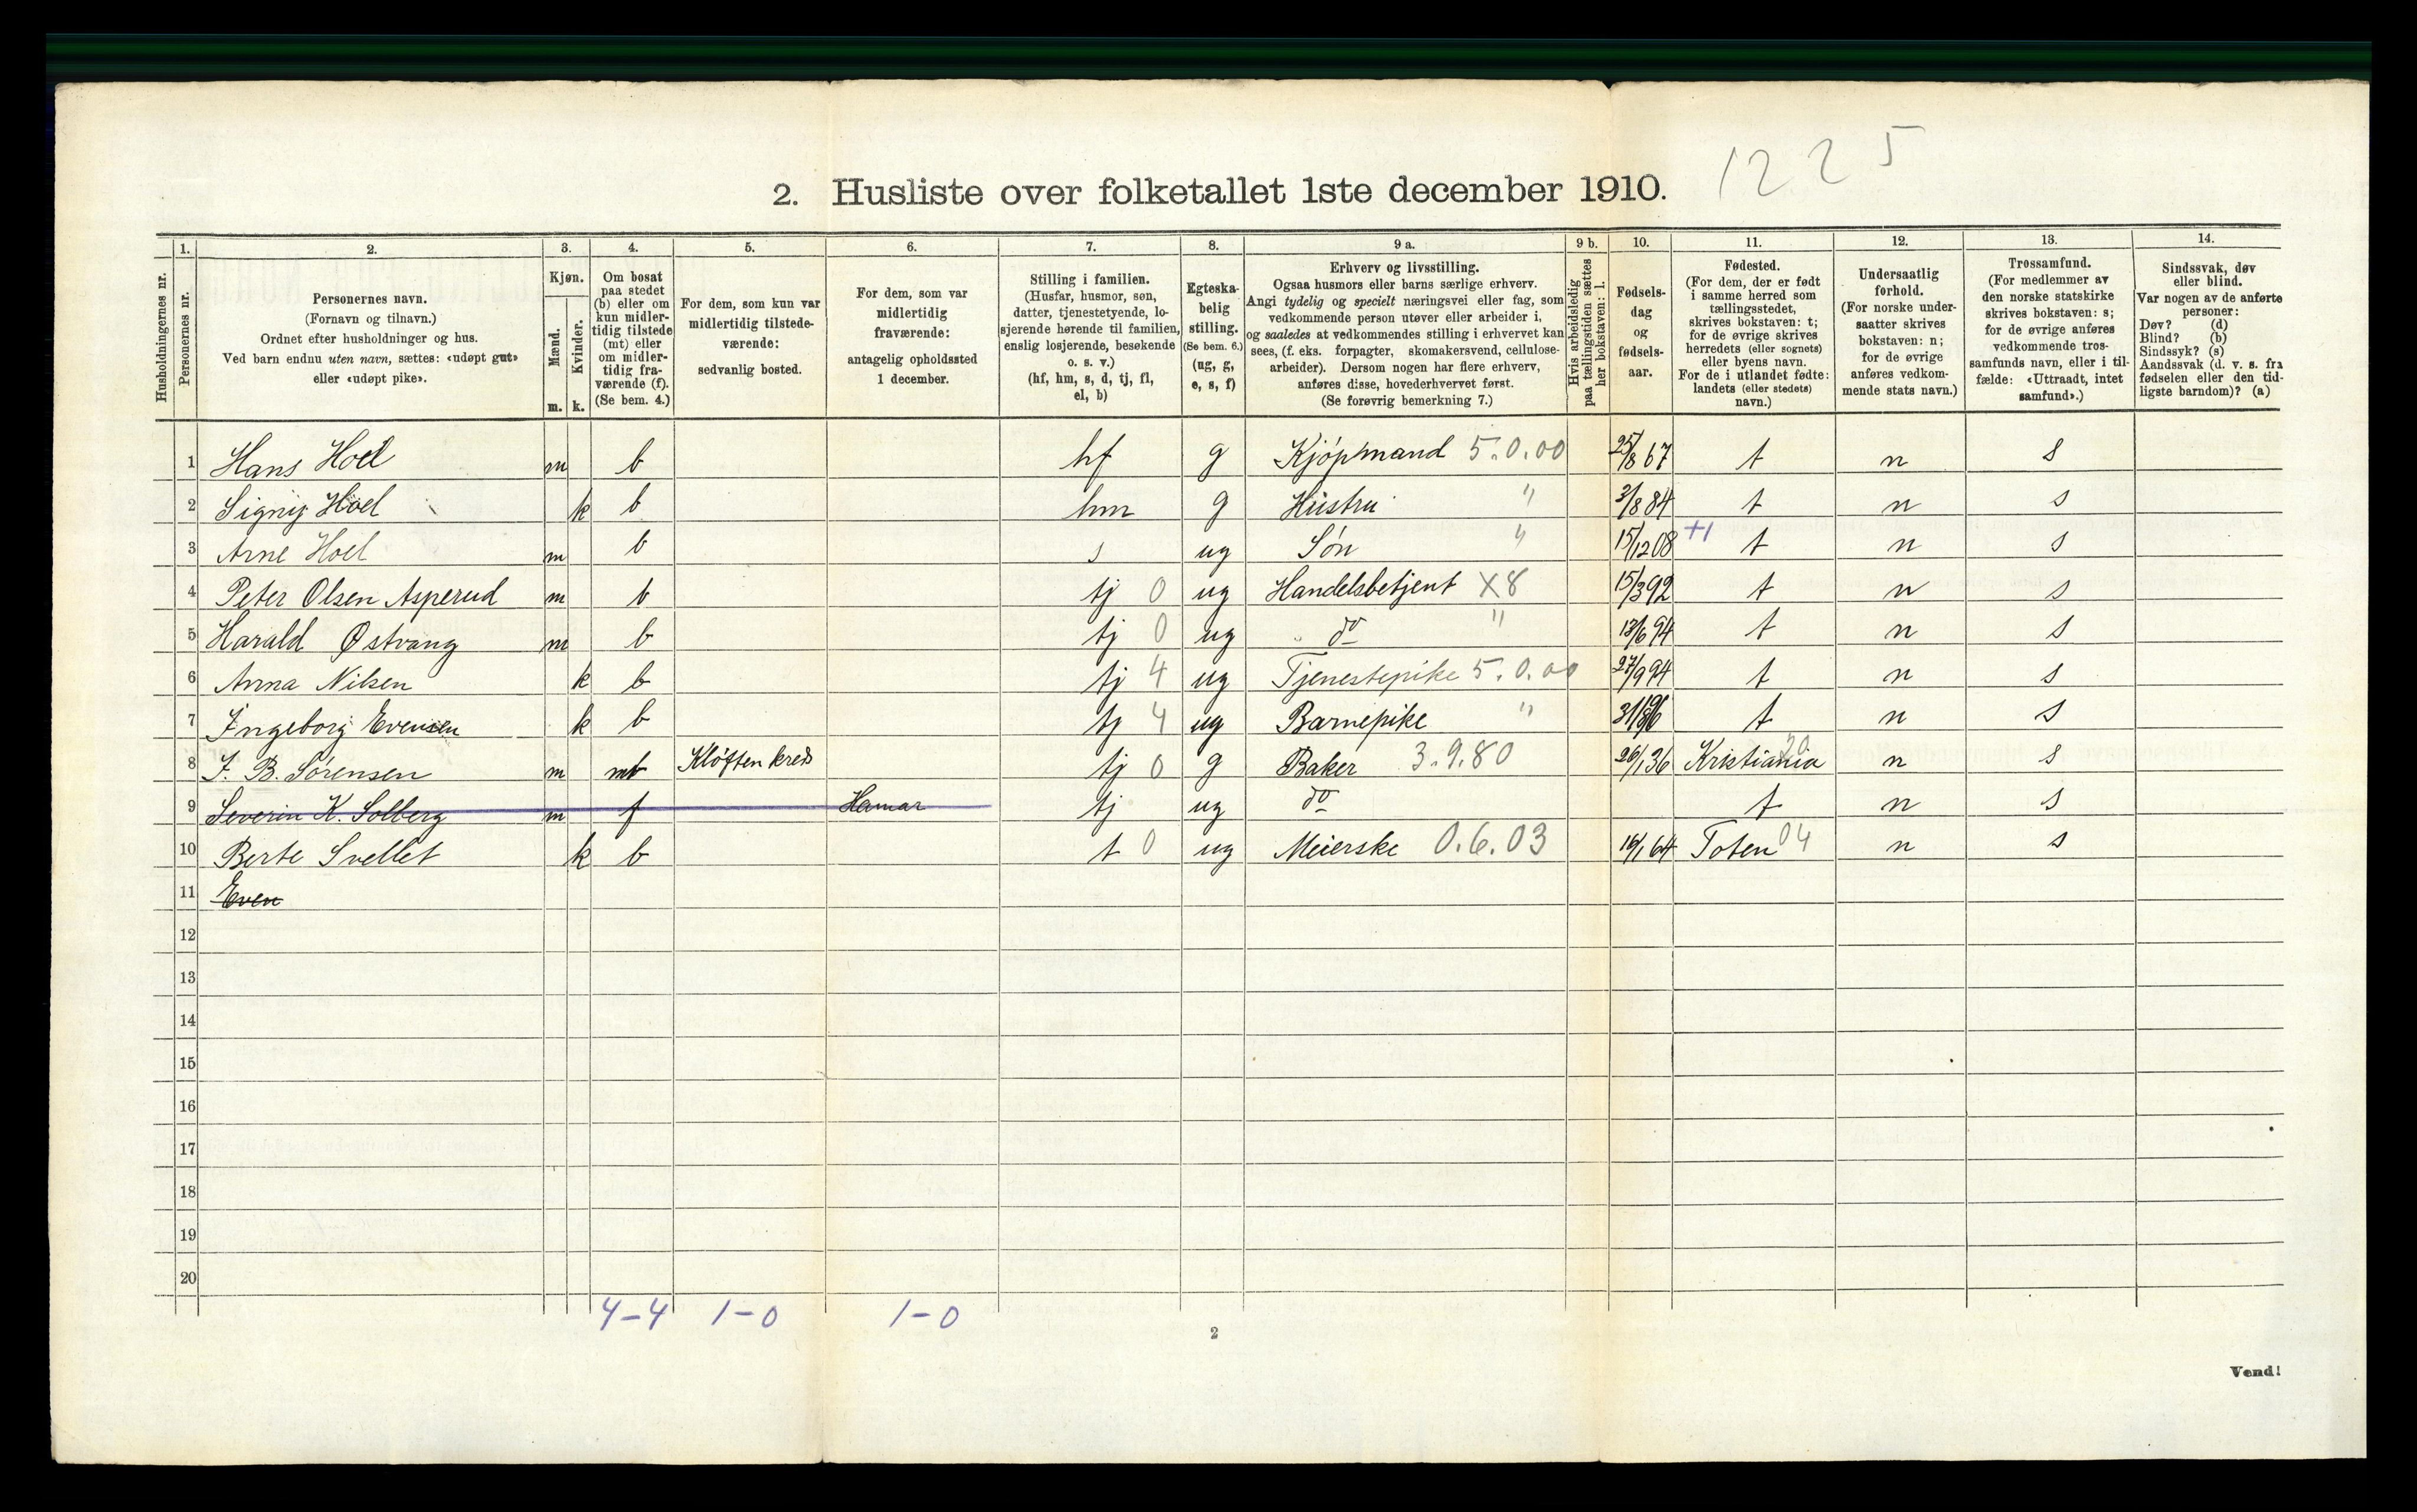 1225
2. Husliste over folketallet 1ste december 1910.
Husholdningernes nr.
1.
Personernes nr.
2.
Personernes navn.
(Fornavn og tilnavn.)
Ordnet efter husholdninger og hus.
Ved barn endnu uten navn, sættes: «udøpt gut»
eller «udøpt pike».
3.
Kjøn.
Mænd.
Kvinder.
m. k.
4.
Om bosat
paa stedet
(b) eller om
kun midler-
tidig tilstede
(mt) eller
om midler-
tidig fra-
værende (f).
(Se bem. 4.)
5.
For dem, som kun var
midlertidig tilstede-
værende:
sedvanlig bosted.
6.
For dem, som var
midlertidig
fraværende:
antagelig opholdssted
1 december.
7.
Stilling i familien.
(Husfar, husmor, søn,
datter, tjenestetyende, lo-
sjerende hørende til familien,
enslig losjerende, besøkende
o. s. v.)
(hf, hm, s, d, tj, fl,
el, b)
8.
Egteska-
belig
stilling.
(Se bem. 6.)
(ug, g,
e, s, f)
9 a.
Erhverv og livsstilling.
Ogsaa husmors eller barns særlige erhverv.
Angi tydelig og specielt næringsvei eller fag, som
vedkommende person utøver eller arbeider i,
og saaledes at vedkommendes stilling i erhvervet kan
sees, (f. eks. forpagter, skomakersvend, cellulose-
arbeider). Dersom nogen har flere erhverv,
anføres disse, hovederhvervet først.
(Se forøvrig bemerkning 7.)
9 b.
Hvis arbeidsledig
paa tællingstiden sættes
her bokstaven: l.
10.
Fødsels-
dag
og
fødsels-
aar.
11.
Fødested.
(For dem, der er født
i samme herred som
tællingsstedet,
skrives bokstaven: t;
for de øvrige skrives
herredets (eller sognets)
eller byens navn.
For de i utlandet fødte:
landets (eller stedets)
navn.)
12.
Undersaatlig
forhold.
(For norske under-
saatter skrives
bokstaven: n;
for de øvrige
anføres vedkom-
mende stats navn.)
13.
Trossamfund.
(For medlemmer av
den norske statskirke
skrives bokstaven: s;
for de øvrige anføres
vedkommende tros-
samfunds navn, eller i til-
fælde: «Uttraadt, intet
samfund».)
14.
Sindssvak, døv
eller blind.
Var nogen av de anførte
personer:
Døv? (d)
Blind? (b)
Sindssyk? (s)
Aandssvak (d. v. s. fra
fødselen eller den tid-
ligste barndom)? (a)
1 Hans Hoel m b hf g Kjøpmand 5.0.00 25/8 67 t n s
2 Signy Hoel k b hm g Hustru " 3/8 84 t n s
3 Arne Hoel m b s ug Søn " 15/12 08 +1 t n s
4 Peter Olsen Asperud m b tj 0 ug Handelsbetjent X8 15/3 92 t n s
5 Harald Østvang m b tj 0 ug do " 13/6 94 t n s
6 Anna Nilsen k b tj 4 ug Tjenestepike 5.0.00 27/9 94 t n s
7 Ingeborg Evensen k b tj 4 ug Barnepike " t n s
8 J. B. Sørensen m mt Kløften kreds tj 0 g Baker 3.9.80 26/1 36 Kristiania 20 n s
9 Severin K. Solberg m f Hamar tj ug do t n s
10 Berte Svellet k b t 0 ug Meierske 0.6.03 16/1 64 Toten 04 n s
11 Even
12
13
14
15
16
17
18
19
20
4-4 1-0 1-0
2
Vend!